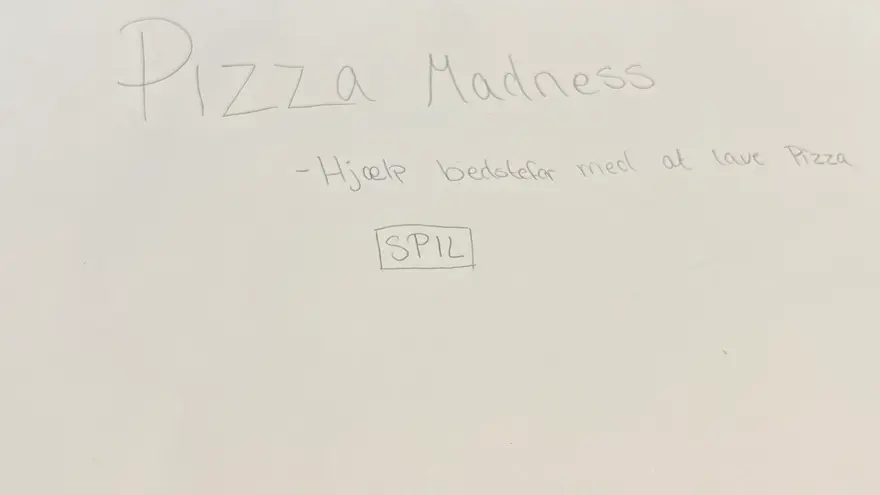 Pizza Madness
- Hjælp bedstefar med at lave Pizza
SPIL